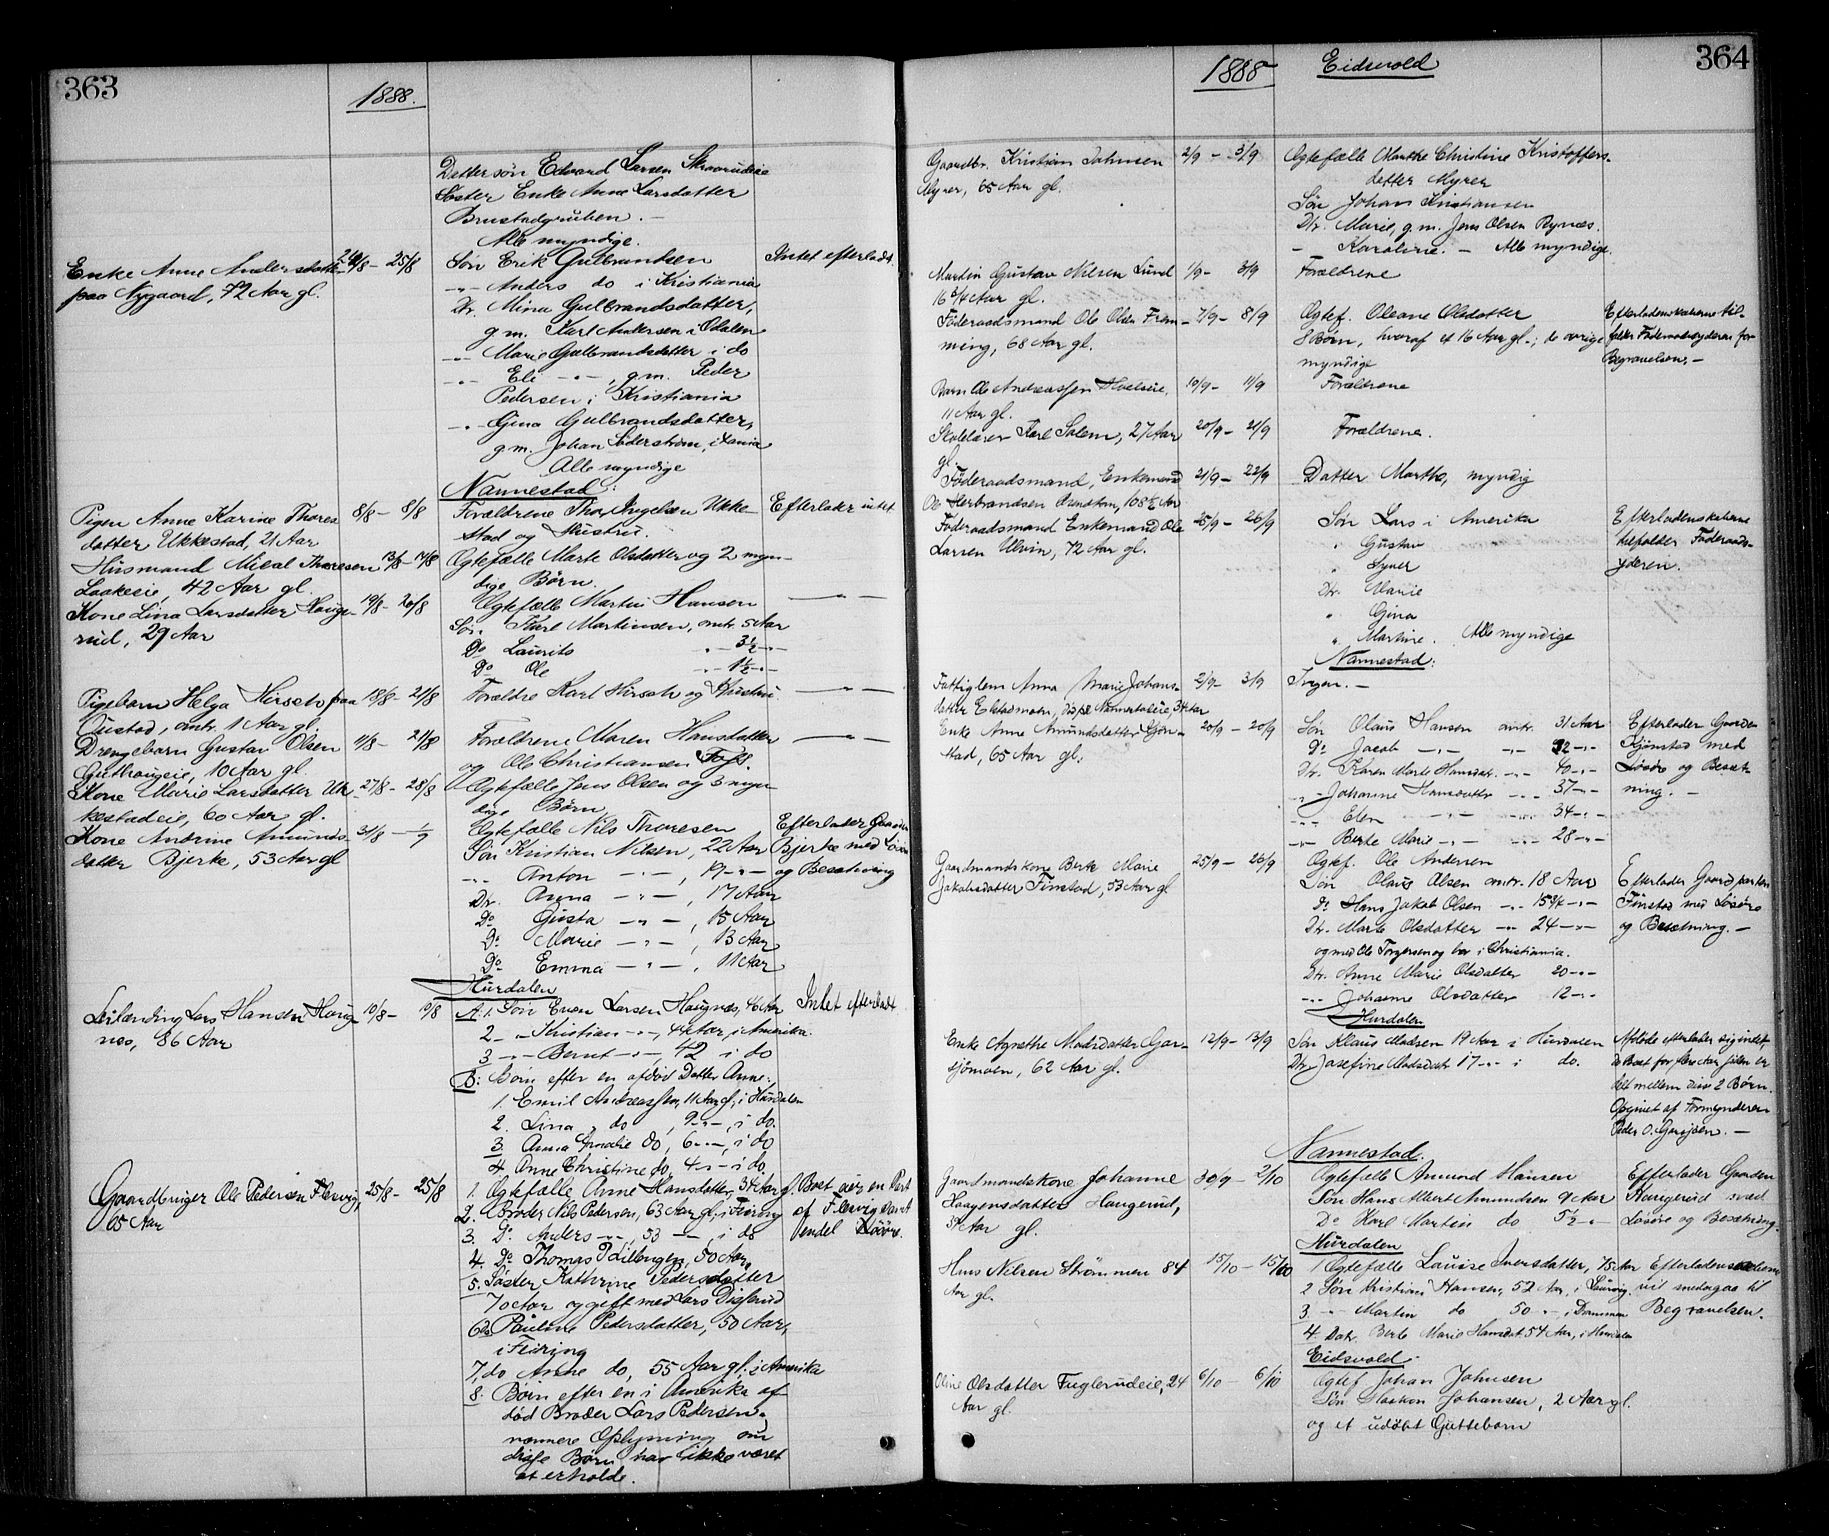 363
1888.
Dattersøn Edvard Larsen
Søster Enke Anne Larsdatter
Brustadgruben. -
Alle myndige.
Enke Anne Andersdatter
paa Nygaard, 72 Aar gl.
24/8 - 25/8
Søn Erik Gulbrandsen
-"- Anders do i Kristiania
Dtr. Mina Gulbrandsdatter,
g.m. Karl Andersen i Odalen
-"- Marie Gulbrandsdatter i do
-"- Eli -"-, g.m. Peder
Pedersen i Kristiania
-"- Gina Gulbrandsdatter,
g.m. Johan Söderström, i Xania
Alle myndige
Intet efterladt.
Nannestad:
Pigen Anne Karine Thores
datter Ukkestad, 21 Aar
8/8 - 8/8
Forældrene Thor Ingelsen Ukke-
stad og Hustru.
Efterlader intet
Husmand Mikal Thoresen
Laakeie, 42 Aar gl.
13/8 - 17/8
Ægtefælle Marte Olsdatter og 2 myn-
dige Børn.
Kone Lina Larsdatter Hauge-
rud, 29 Aar
19/8 - 20/8
Ægtefælle Martin Hansen
Søn Karl Martinsen, omtr. 5 Aar
Do Laurits -"- 3½ -"-
Do Ole -"- 1½ -"-
- " -
Pigebarn Helga Hirsch paa
Oustad, omtr. 1 Aar gl.
18/8 - 21/8
Forældre Karl Hirsch og Hustru
- " -
Drengebarn Gustav Olsen
10 Aar gl.
11/8 - 21/8
Forældrene Maren Hansdatter
og Ole Christiansen
- " -
Kone Marie Larsdatter Uk-
kestadeie, 60 Aar gl.
27/8 - 28/8
Ægtefælle Jens Olsen og 3 myn-
dige Børn
Kone Andrine Amunds-
datter Bjerke, 53 Aar gl
31/8 - 1/9
Ægtefælle Nils Thoresen
Søn Kristian Nilsen, 22 Aar
-"- Anton -"-, 19 -"-
Dtr. Anna -"-, 17 Aar
Do Gusta -"-, 15 Aar
Do Marie -"-, 13 Aar
Do Emma -"-, 11 Aar
Efterlader Gaarden
Bjerke med Løsøre
og Besætning
Hurdalen
Leilænding Lars Hansen Haug-
næs, 86 Aar
10/8 - 19/8
A: 1. Søn Even Larsen Haugnæs, 46 Aar
2 -"- Kristian -"-, 44 Aar, i Amerika
3 -"- Bernt -"-, 42 i do
B: Børn efter en afdød Datter Anne:
1. Emil Andreassen, 11 Aar gl, i Hurdalen
2. Lina, do, 9 -"-, i do.
3. Anna Amalie do, 6 -"-, i do
4. Anne Christine do, 4 -"- i do
Intet efterladt
Gaardbruger Ole Pedersen Flesvig,
65 Aar
25/8 - 25/8
1. Ægtefælle Anne Hansdatter, 34 Aar gl.
2. Broder Nils Pedersen, 63 Aar gl, i Feiring
3. Do Anders -"-, 53 -"-, i do
4. Do Thomas P. 50 Aar
5. Søster Kathrine Pedersdatter
70 Aar og gift med Lars Disserud
6. do Pauline Pedersdatter, 50 Aar,
i Feiring
7, do Anne do, 55 Aar gl, i Amerika
8. Børn efter en i Amerika af-
død Broder Lars Pedersen.
nærmere Oplysning om
disse Børn har ikke været
at erholde.
Boet eier en Part
af Flesvig samt
endel Løsøre.
364
1888
Eidsvold
Gaardbr. Kristian Johnsen
Myrer, 65 Aar gl.
2/9 - 3/9
Ægtefælle Marthe Christine Kristoffers-
datter Myrer
Søn Johan Kristiansen
Dtr. Marie, g.m. Jens Olsen Bynæs.
- Karoline. - Alle myndige.
Martin Gustav Nilsen Lund
16 3/4 Aar gl.
1/9 - 3/9
Forældrene
Føderaadsmand Ole Olsen Frem-
ming, 68 Aar gl.
7/9 - 8/9
Ægtef. Oleane Olsdatter
8 Børn, hvoraf et 16 Aar gl.; de øvrige
myndige
Efterladenskaberne til-
falder Føderaadsyderen for
Begravelsen. -
Barn Ole Andreassen
11 Aar gl.
10/9 - 11/9
Forældrene
Skolelærer Karl Salem, 27 Aar
gl.
20/9 - 21/9
Forældrene.
Føderaadsmand, Enkemand
Ole Herbrandsen 108½ Aar
21/9 - 22/9
Datter Marthe, myndig
Føderaadsmand Enkemand Ole
Larsen Ulvin, 72 Aar gl.
25/9 - 26/9
Søn Lars i Amerika
" Gustav
" Syver
Dtr. Marie
" Gina
" Martine. Alle myndige
Efterladenskaberne
tilfalder Føderaads-
yderen.
Nannestad:
Fattiglem Anna Marie Johans-
datter 34 Aar
2/9 - 3/9
Ingen. -
Enke Anne Amundsdatter Gjøn-
stad, 65 Aar gl.
20/9 - 20/9
Søn Olaus Hansen omtr. 31 Aar
Do Jacob -"- -"- 22 -"-
Dtr. Karen Marte Hansdat. -"- 40 -"-
-"- Johanne Hansdatter -"- 37 -"-
-"- Elen -"- -"- 34 -"-
-"- Berte Marie -"- -"- 28 -"-
Efterlader Gaarden
Gjønstad med
Løsøre og Besæt-
ning. -
Gaardmandskone Berte Marie
Jakobsdatter Finstad, 53 Aar gl
25/9 - 26/9
Ægtef. Ole Andersen
Søn Olaus Olsen omtr. 18 Aar
Do Hans Jakob Olsen -"- 15 3/4 -"-
Dtr. Marte Olsdatter -"- 24 -"-
og med Ole Torgersen og bor i Christiania.
Dtr. Anne Marie Olsdatter 20 -"-
-"- Johanne Olsdatter 12 -"-
Efterlader Gaardparten
Finstad med Løsøre
og Besætning. -
Hurdalen
Enke Agnethe Madsdatter Gar-
sjømoen, 62 Aar gl.
12/9 - 13/9
Søn Klaus Madsen 19 Aar i Hurdalen
Dtr. Josefine Madsdatr 17 -"- i do.
Afdøde efterlader sig intet,
da Boet for flere Aar siden er
delt mellem disse 2 Børn.
Opgivet af Formynderen
Peder O. Garsjøen. -
Nannestad.
Gaardmandskone Johanne
Haagensdatter Haugerud,
34 Aar gl.
30/9 - 2/10
Ægtefælle Amund Hansen
Søn Hans Albert Amundsen 9 Aar
Do Karl Martin do 5½ -"-
Efterlader Gaarden
Haugerud med
Løsøre og Besætning
Hurdalen
Hans Nilsen Strømmen 84
Aar gl.
15/10 - 15/10
1 Ægtefælle Louise Iversdatter, 75 Aar
2 Søn Kristian Hansen, 52 Aar, i Laurvig
3 -"- Martin do 50 -"- i Drammen
4. Datr. Berte Marie Hansdat. 54 Aar, i Hurdalen
Efterladenskaberne
vil medgaa til
Begravelsen.
Eidsvold.
Oline Olsdatter Fuglerudeie, 24
Aar gl.
6/10 - 6/10
Ægtef Johan Johnsen
Søn Haakon Johansen, 2 Aar gl.
og et udøbt Guttebarn